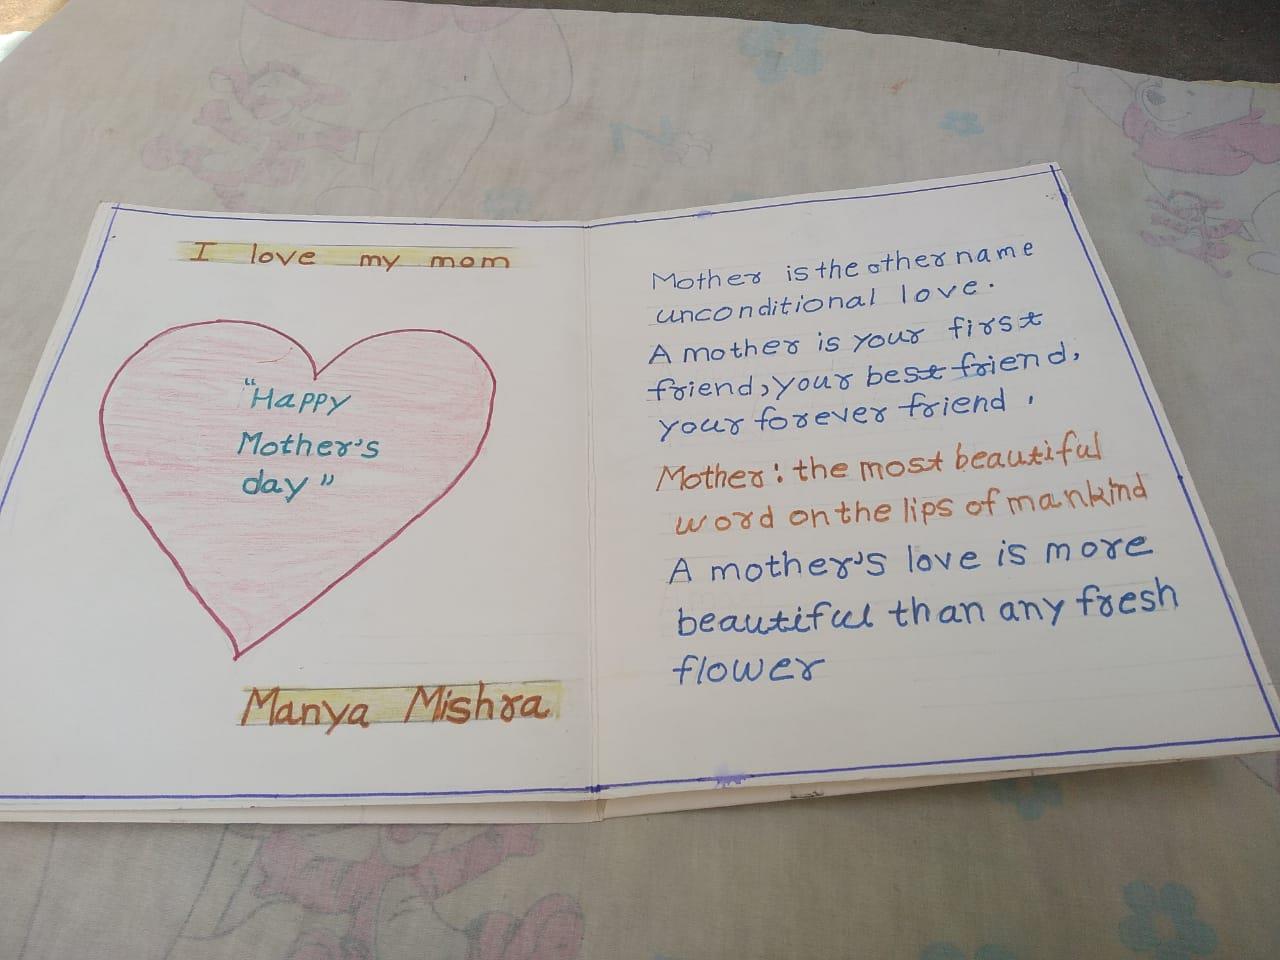 I love my mom
"Happy
Mother's
day"
Manya Mishra
Mother is the other name
unconditional love.
A mother is your first
friend, your best friend,
your forever friend.
Mother: the most beautiful
word on the lips of mankind
A mother's love is more
beautiful than any fresh
flower